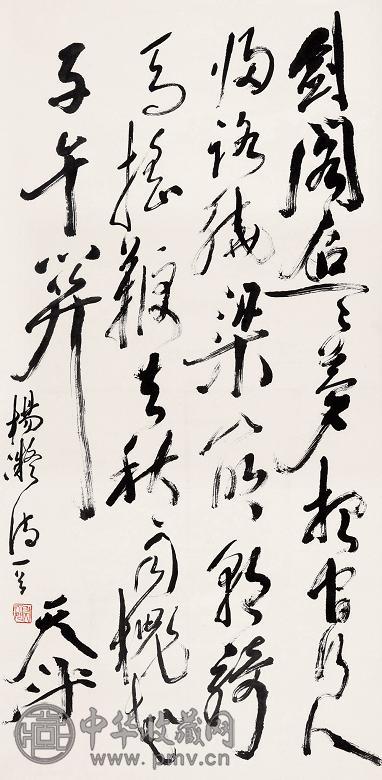 劍閣迢迢夢想間行人
歸路繞梁山明朝騎
馬搖鞭去秋雨槐花
子午關
楊凝詩一首
中华收藏网
www.pmv.cn